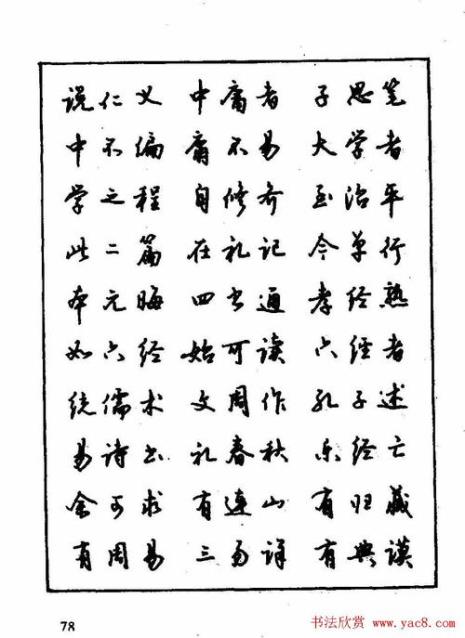 说仁义 中庸者 子思笔
中不偏 庸不易 大学者
学之程 自修齐 至治平
此二篇 在礼记 今单行
本元晦 四书通 孝经熟
如六经 始可读 六经者
统儒术 文周作 孔子述
易诗书 礼春秋 乐经亡
余可求 有连山 有归藏
有周易 三易详 有典谟
78
书法欣赏 www.yac8.com